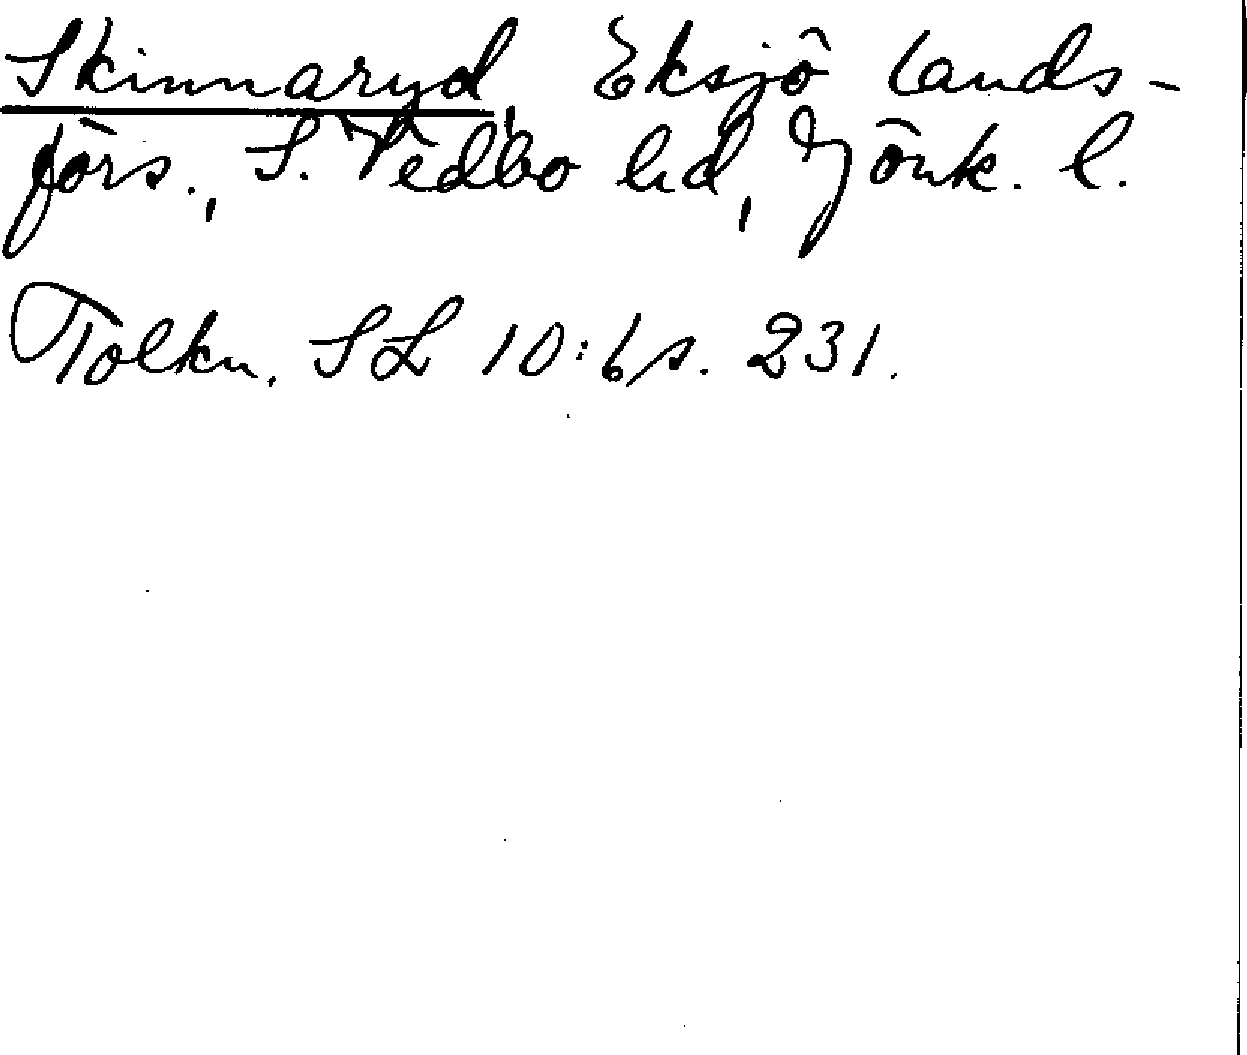 Skinnaryd, Eksjö lands-
förs., S. Vedbo hd, Jönk. l.
Tolkn. SL 10:6 s. 231.